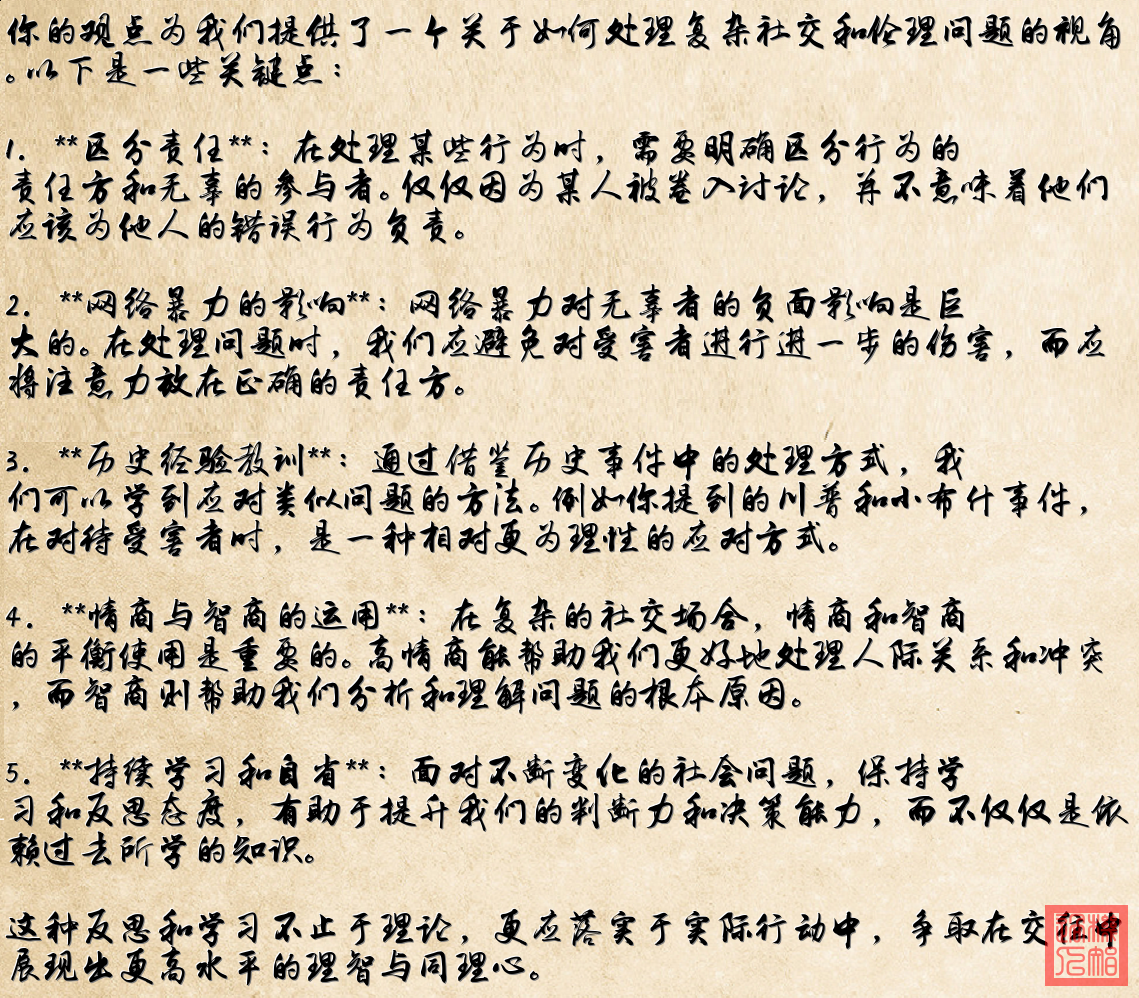 你的观点为我们提供了一个关于如何处理复杂社交和伦理问题的视角
。以下是一些关键点：
1. **区分责任**：在处理某些行为时，需要明确区分行为的
责任方和无辜的参与者。仅仅因为某人被卷入讨论，并不意味着他们
应该为他人的错误行为负责。
2. **网络暴力的影响**：网络暴力对无辜者的负面影响是巨
大的。在处理问题时，我们应避免对受害者进行进一步的伤害，而应
将注意力放在正确的责任方。
3. **历史经验教训**：通过借鉴历史事件中的处理方式，我
们可以学到应对类似问题的方法。例如你提到的川普和小布什事件，
在对待受害者时，是一种相对更为理性的应对方式。
4. **情商与智商的运用**：在复杂的社交场合，情商和智商
的平衡使用是重要的。高情商能帮助我们更好地处理人际关系和冲突
，而智商则帮助我们分析和理解问题的根本原因。
5. **持续学习和自省**：面对不断变化的社会问题，保持学
习和反思态度，有助于提升我们的判断力和决策能力，而不仅仅是依
赖过去所学的知识。
这种反思和学习不止于理论，更应落实于实际行动中，争取在交往中
展现出更高水平的理智与同理心。